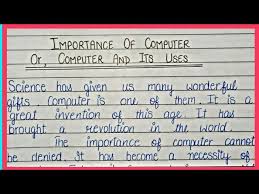 IMPORTANCE OF COMPUTER
OR, COMPUTER AND ITS USES
Science has given us many wonderful
gifts Computer is one of them. It is a
great invention of this age. It has
brought a revolution in the world.
The importance of computer cannot
be denied. It has become a necessity of